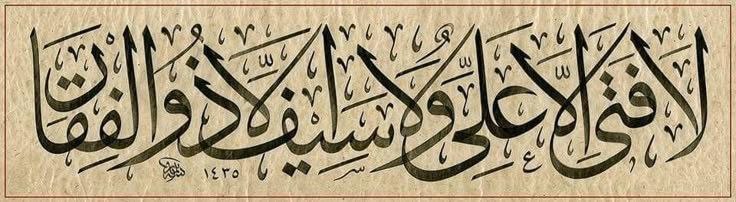 لا فتى الا علي ولا سيف الا ذو الفقار
١٤٣٥